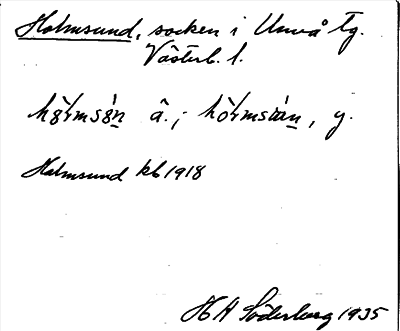 Holmsund, socken i Umeå tg.
Västerb. l.
hǫ̀lmsǝ́n ä.; hǫ̀lmsùn, y.
Holmsund kb 1918
H A Söderberg 1935